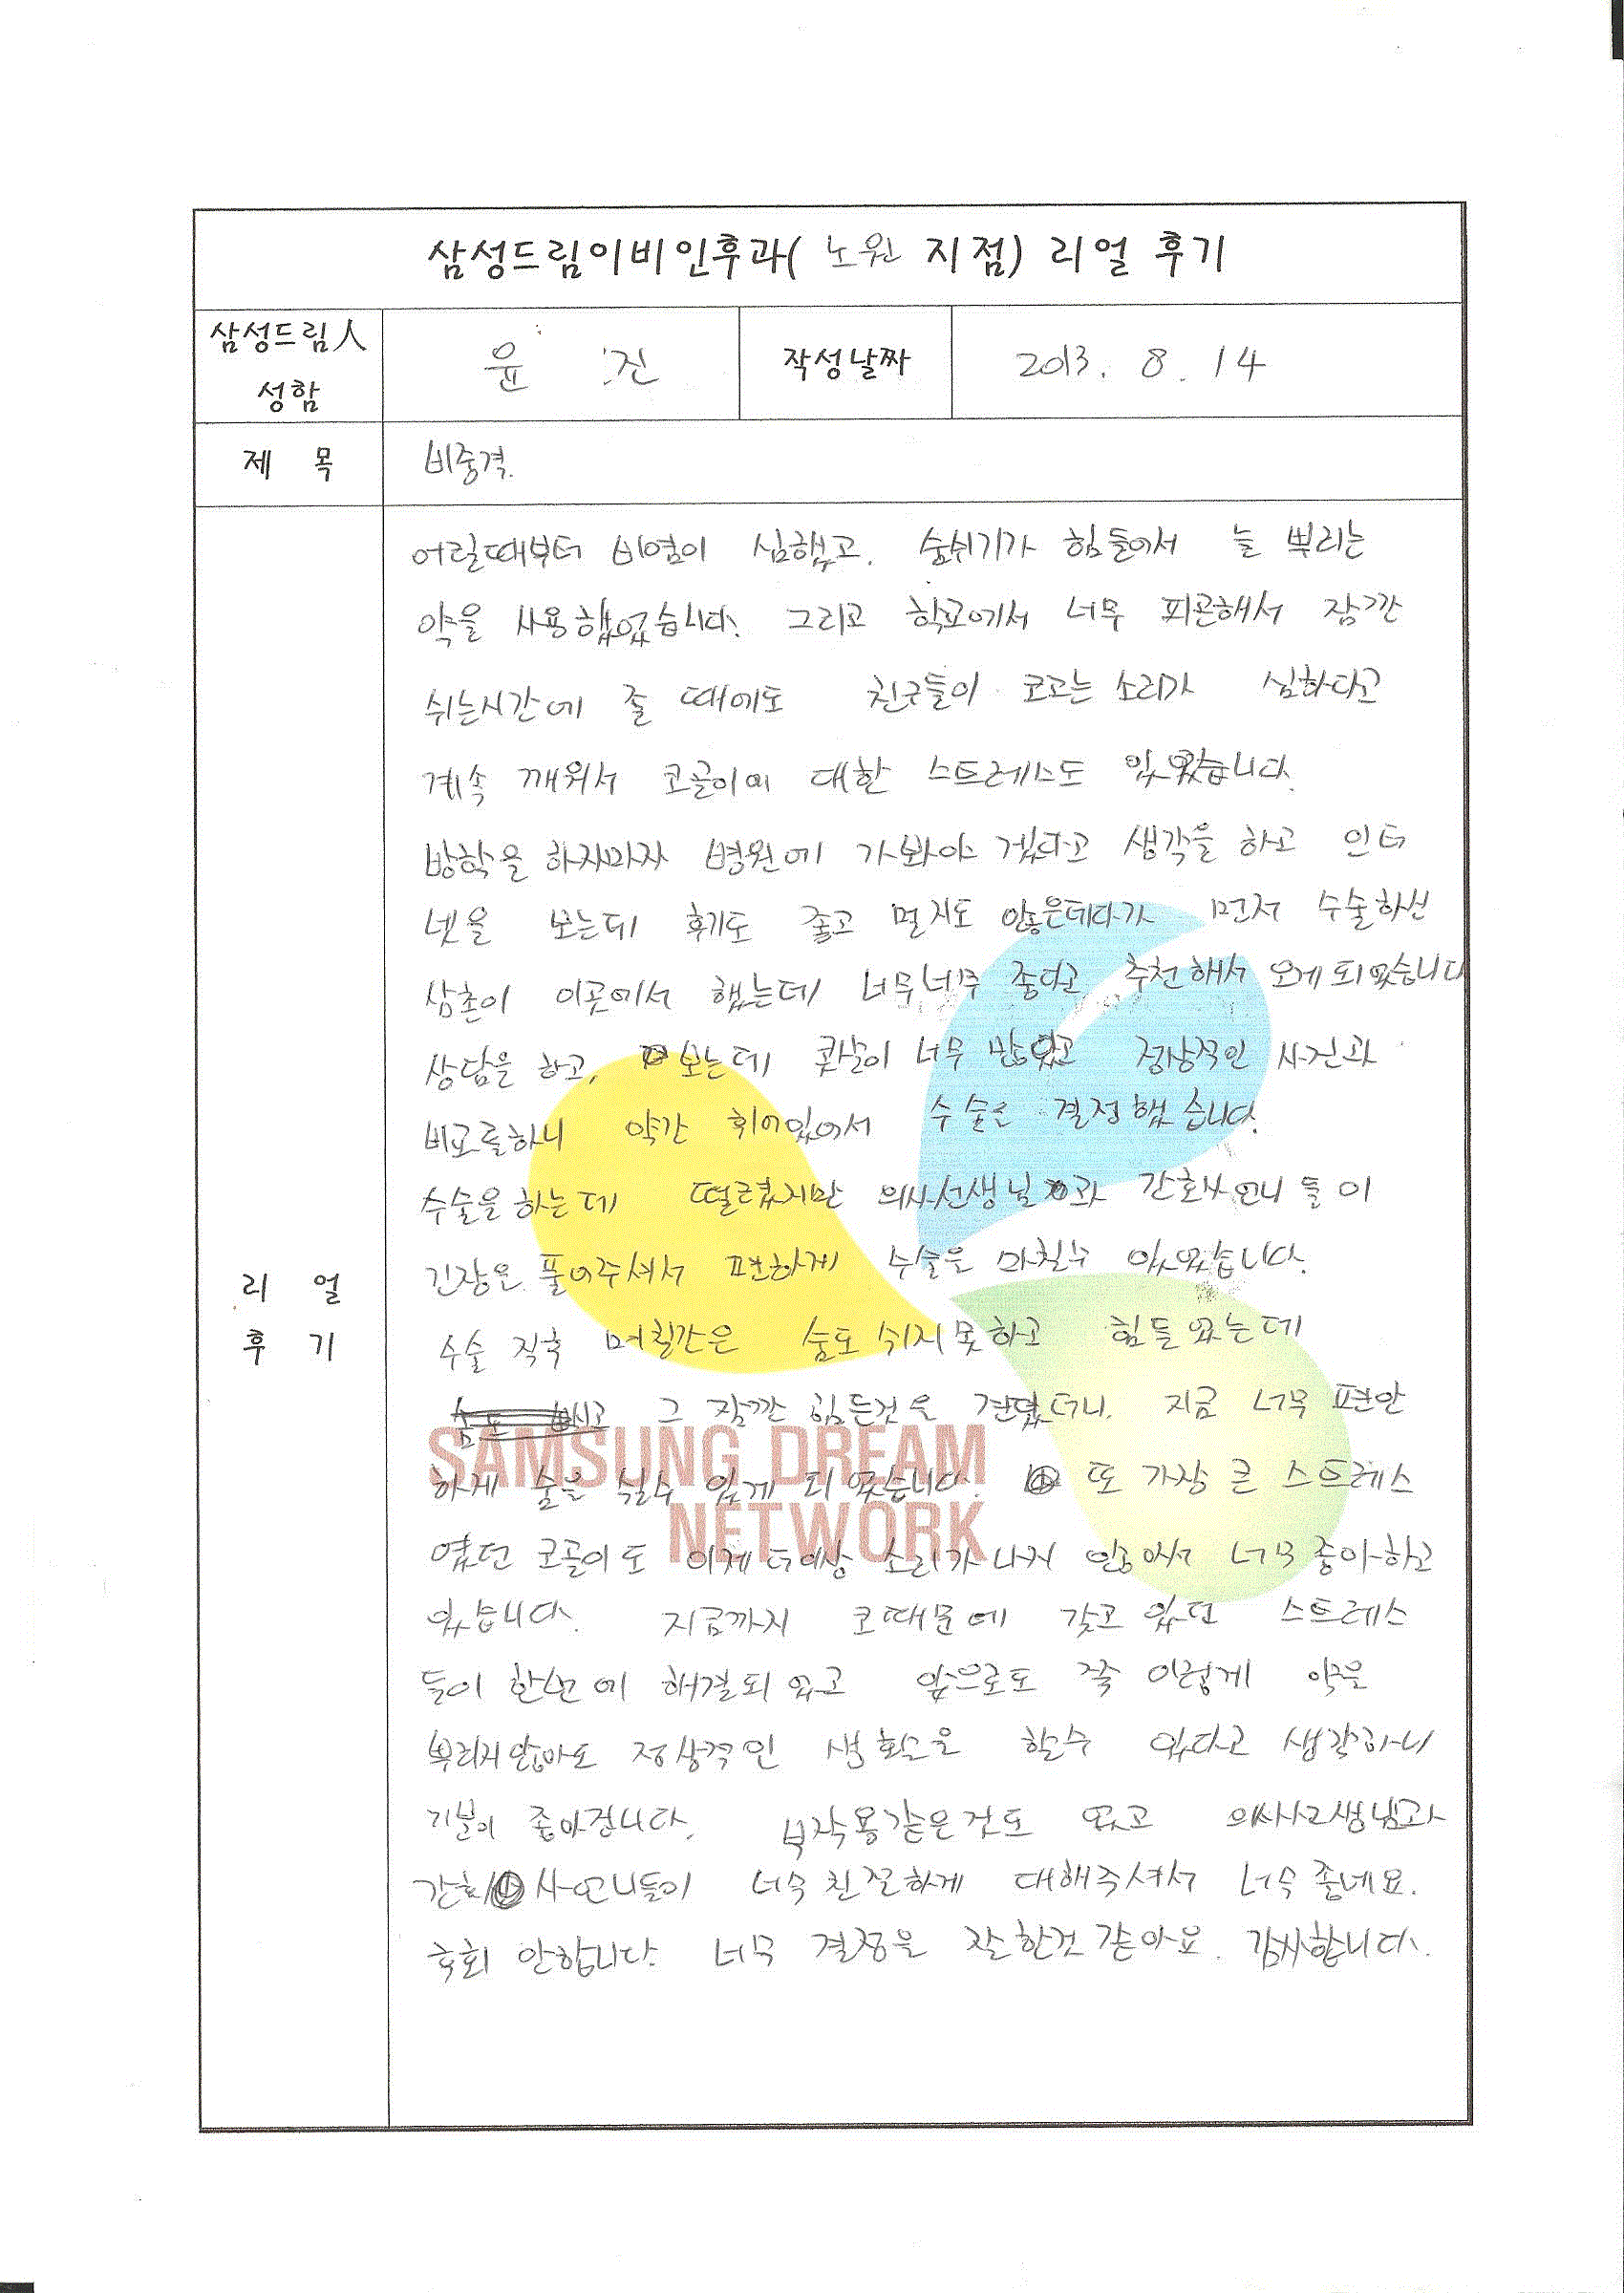 삼성드림이비인후과( 노원 지점) 리얼 후기
삼성드림人
성함
윤 진
작성날짜
2013. 8. 14
제 목
비중격.
리 얼
후 기
어릴때부터 비염이 심했고. 숨쉬기가 힘들어서 늘 뿌리는
약을 사용했었습니다. 그리고 학교에서 너무 피곤해서 잠깐
쉬는시간에 졸 때에도 친구들이 코고는 소리가 심하다고
계속 깨워서 코골이에 대한 스트레스도 있었습니다.
방학을 하자마자 병원에 가봐야 겠다고 생각을 하고 인터
넷을 보는데 후기도 좋고 멀지도 않은데다가 먼저 수술하신
삼촌이 이곳에서 했는데 너무너무 좋다고 추천해서 오게 되었습니다
상담을 하고, 보는데 콧살이 너무 많았고 정상적인 사진과
비교를하니 약간 휘어있어서 수술은 결정했습니다.
수술을 하는데 떨렸지만 의사선생님과 간호사 언니 들이
긴장은 풀어주셔서 편하게 수술은 마칠수 있었습니다.
수술 직후 며칠간은 숨도 쉬지 못하고 힘들었는데
그 잠깐 힘든것을 견뎠더니. 지금 너무 편안
하게 숨을 쉴수 있게 되었습니다. 또 가장 큰 스트레스
SAMSUNG DREAM
NETWORK
였던 코골이도 이제 더이상 소리가 나지 않아서 너무 좋아하고
있습니다. 지금까지 코때문에 갖고 있던 스트레스
들이 한번에 해결되었고 앞으로도 쭉 이렇게 약은
뿌리지 않아도 정상적인 생활은 할수 있다고 생각하니
기분이 좋아집니다. 부작용같은것도 없고 의사선생님과
간호사언니들이 너무 친절하게 대해주셔서 너무 좋네요.
후회 안합니다. 너무 결정은 잘 한것 같아요. 감사합니다.